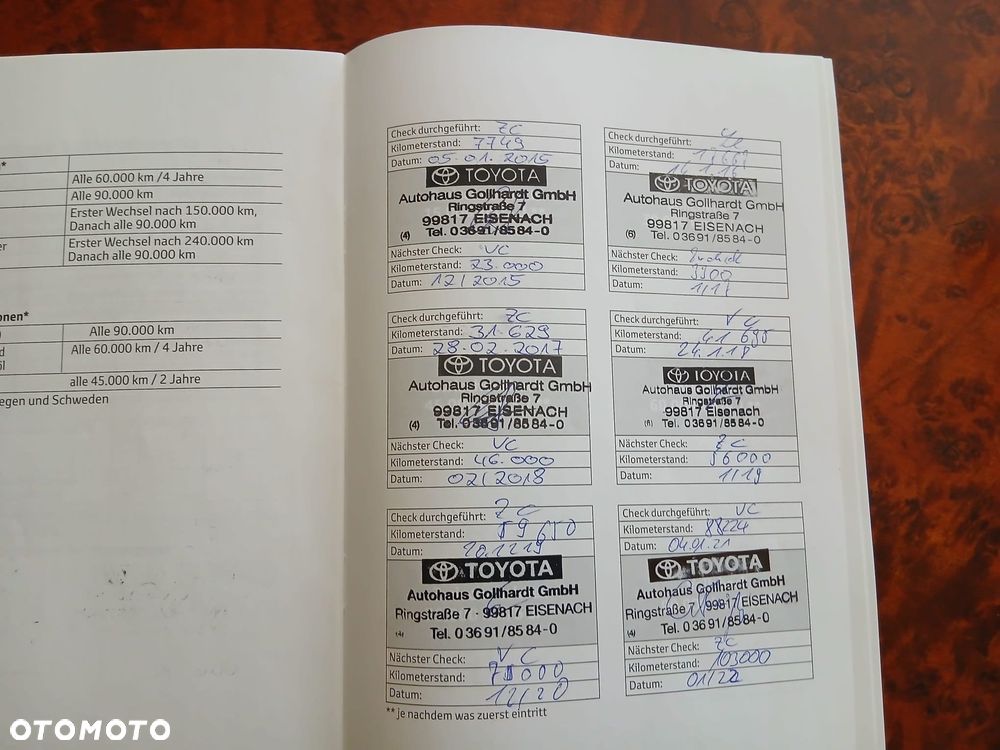 *
Alle 60.000 km /4 Jahre
Alle 90.000 km
Erster Wechsel nach 150.000 km,
Danach alle 90.000 km
er
Erster Wechsel nach 240.000 km
Danach alle 90.000 km
onen*
Alle 90.000 km
d
Alle 60.000 km / 4 Jahre
öl
alle 45.000 km / 2 Jahre
egen und Schweden
Check durchgeführt: ZC
Kilometerstand: 7749
Datum: 05.01.2015
TOYOTA
Autohaus Gollhardt GmbH
Ringstraße 7
99817 EISENACH
(4) Tel. 03691/8584-0
Nächster Check: VC
Kilometerstand: 23.000
Datum: 12/2015
Check durchgeführt:
Kilometerstand:
Datum:
TOYOTA
Autohaus Gollhardt GmbH
Ringstraße 7
99817 EISENACH
(6) Tel. 03691/8584-0
Nächster Check:
Kilometerstand:
Datum: 1/17
Check durchgeführt: ZC
Kilometerstand: 31.629
Datum: 28.02.2017
TOYOTA
Autohaus Gollhardt GmbH
Ringstraße 7
99817 EISENACH
(4) Tel. 03691/8584-0
Nächster Check: VC
Kilometerstand: 46.000
Datum: 02/2018
Check durchgeführt: VC
Kilometerstand: 41 695
Datum: 24.1.18
TOYOTA
Autohaus Gollhardt GmbH
Ringstraße 7
99817 Eisenach
(6) Tel. 03691/8584-0
Nächster Check: ZC
Kilometerstand: 56000
Datum: 1/19
Check durchgeführt: ZC
Kilometerstand: 59 650
Datum: 20.12.19
TOYOTA
Autohaus Gollhardt GmbH
Ringstraße 7 · 99817 EISENACH
(4) Tel. 03691/8584-0
Nächster Check: VC
Kilometerstand:
Datum: 12/20
Check durchgeführt: VC
Kilometerstand: 88224
Datum: 04.01.21
TOYOTA
Autohaus Gollhardt GmbH
Ringstraße 7 · 99817 EISENACH
(4) Tel. 03691/8584-0
Nächster Check: ZC
Kilometerstand: 103000
Datum: 01/22
** je nachdem was zuerst eintritt
OTOMOTO